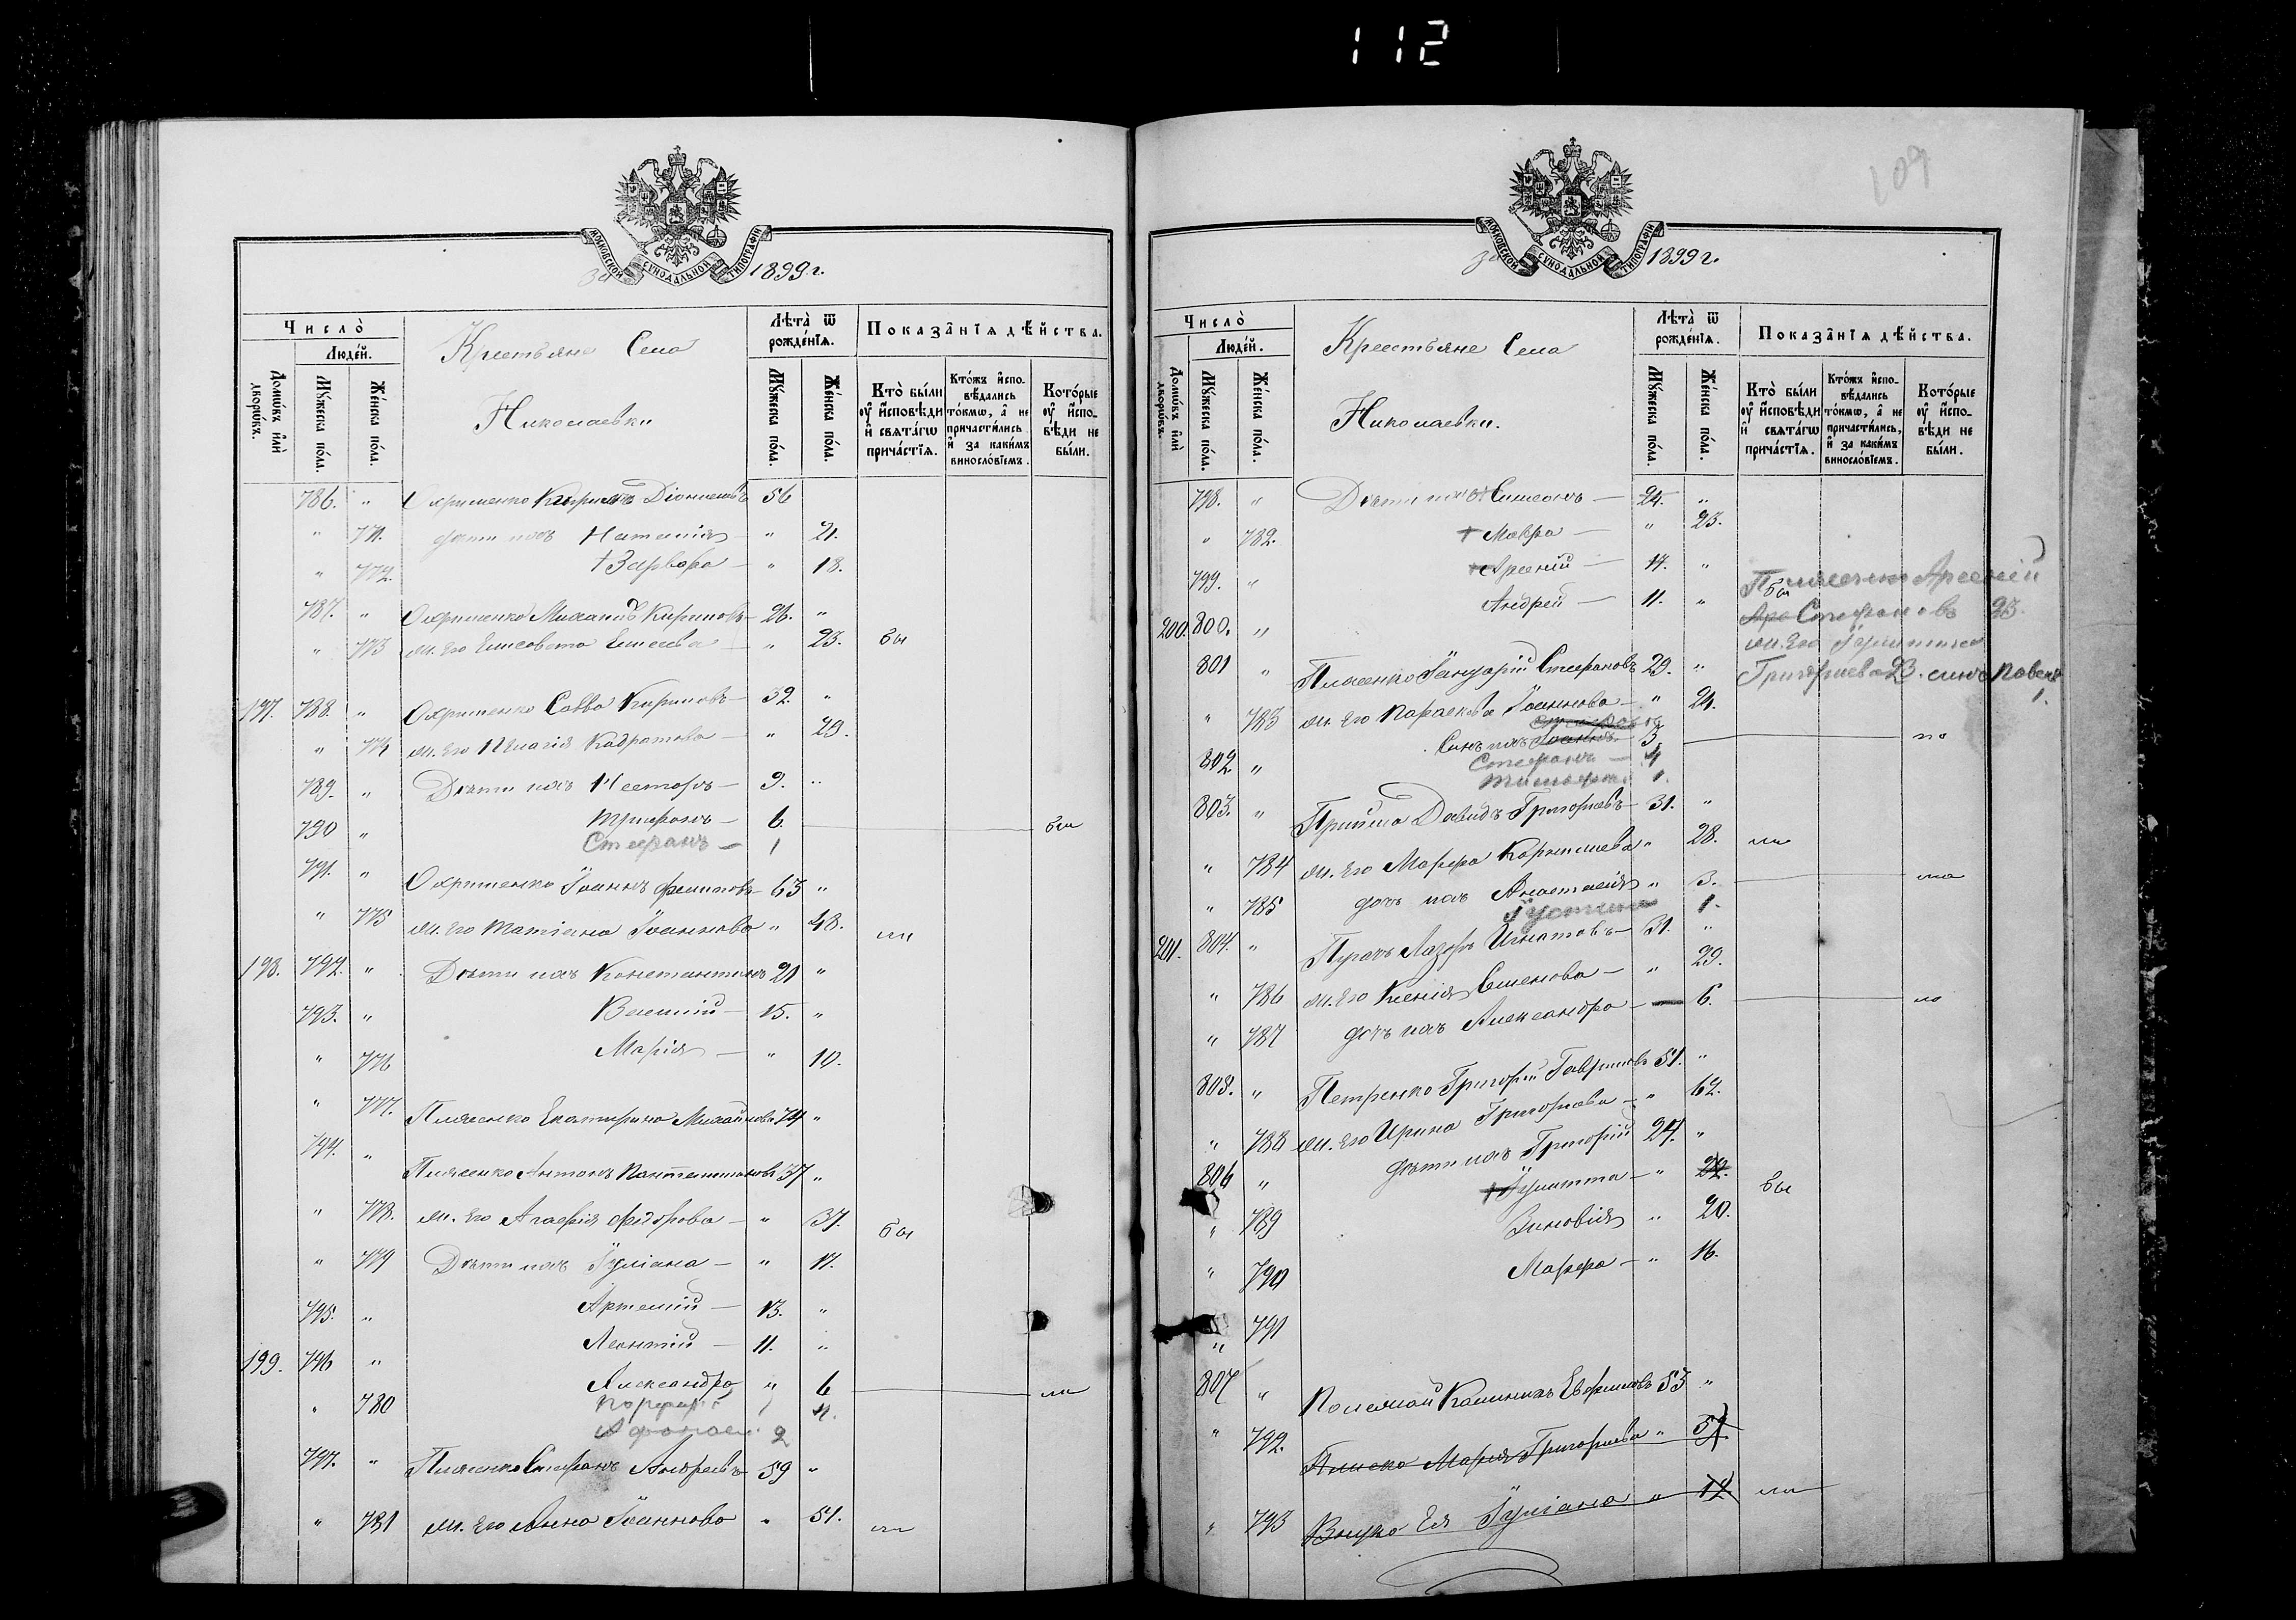 112
109
МОСКОВСКОЙ СѴНОДАЛЬНОЙ ТИПОГРАФІИ
за 1899 г.
Число̀
Людéй.
Домѡ́въ и҆лѝ дворѡ́въ.
Мꙋ́жеска по́ла.
Же́нска по́ла.
Крестьяне Села
Николаевки
Лѣта̀ ѿ рожде́нїѧ.
Мꙋ́жеска по́ла.
Же́нска по́ла.
Показа̑нїѧ дѣ́йства.
Кто̀ бы́ли ᲂу҆ и҆сповѣди и҆ свѧта́гѡ прича́стїѧ.
Кто́жъ и҆спо-вѣдались то́кмѡ, а҆ не причасти́лись, и҆ за каки́мъ виносло́вїемъ.
Кото́рые ᲂу҆ и҆спо-вѣди не бы́ли.
786. " Охрименко Кирилъ Діонисіевъ 56
" 771. дѣти ихъ Наталія - " 21.
" 772. † Варвара - " 18.
787. " Охрименко Михаилъ Кириловъ - 26. "
" 773 ж. его Елисавета Елисеева " 23. бы
197. 788. " Охрименко Савва Кириловъ - 32. "
" 774 ж. его Пелагія Кодратова - " 29.
789. " Дѣти ихъ Несторъ - 9. "
790 " Трифонъ - 6. бы
Стефанъ - 1
791. " Охрименко Іоаннъ Филиповъ - 63 "
" 775 ж. его Татіана Іоаннова " 48. ли
198. 792. " Дѣти ихъ Константинъ 21 "
793. " Василій - 15. "
" 776 Марія - " 10.
" 777. Пилипенко Екатерина Михайлова 74 "
794. " Пилипенко Антонъ Пантелимоновъ 37 "
" 778. ж. его Агафія Фидорова - " 37. бы
" 779 Дѣти ихъ Іуліана - " 17.
795. " Артемій - 13. "
Леонтій - 11. "
199. 796 " Александра " 6 ли
" 780 Порфирі 4.
Афанас 2
797. " Стефанъ Андреевъ 59 "
" 781 ж. его Анна Іоаннова " 51. ли
МОСКОВСКОЙ СѴНОДАЛЬНОЙ ТИПОГРАФІИ
за 1899 г.
Число̀
Людéй.
Домѡ́въ и҆лѝ дворѡ́въ.
Мꙋ́жеска по́ла.
Же́нска по́ла.
Крестьяне Села
Николаевки.
Лѣта̀ ѿ рожде́нїѧ.
Мꙋ́жеска по́ла.
Же́нска по́ла.
Показа̑нїѧ дѣ́йства.
Кто̀ бы́ли ᲂу҆ и҆сповѣди и҆ свѧта́гѡ прича́стїѧ.
Кто́жъ и҆спо-вѣдались то́кмѡ, а҆ не причасти́лись, и҆ за каки́мъ виносло́вїемъ.
Кото́рые ᲂу҆ и҆спо-вѣди не бы́ли.
798. " Дѣти ихъ Симеонъ - 24. "
" 782. † Мавра - " 23.
799. " Арсеній - 17. " Арсеній
Андрей - 11. " бы
Стефановъ 23.
200. 800. "
ж. его
801 " Стефановъ 29. " Григориева 23. сынъ Павелъ 1.
" 783 ж. его Параскева Іоаннова - " 24.
Сынъ ихъ Іоаннъ 3. ло
802 " Стефанъ - 4
Тимофей 1.
803. " Прійма Давидъ Григориевъ - 31. "
" 784 ж. его Марфа Корнилиева " 28. ли
" 785 дочь ихъ Анастасія " 3. ла
Іустина 1.
201. 804. " Пугачъ Лазарь Игнатовъ - 31. "
" 786 ж. его Ксенія Семенова - " 29.
" 787 дочь ихъ Александра - 6. ло
805. " Петренко Григорій Гавриловъ 51. "
" 788 ж. его Ирина Григориева - " 62.
806 " дѣти ихъ Григорій 24. "
† Іулитта - " 22. бы
" 789 Зиновія " 20.
" 790 Марфа - " 16.
" 791
807 " Калинникъ Евфимовъ 53 "
" 792. Марія Григориева " 57.
" 793 Внука Ея Іуліана " 12 ли